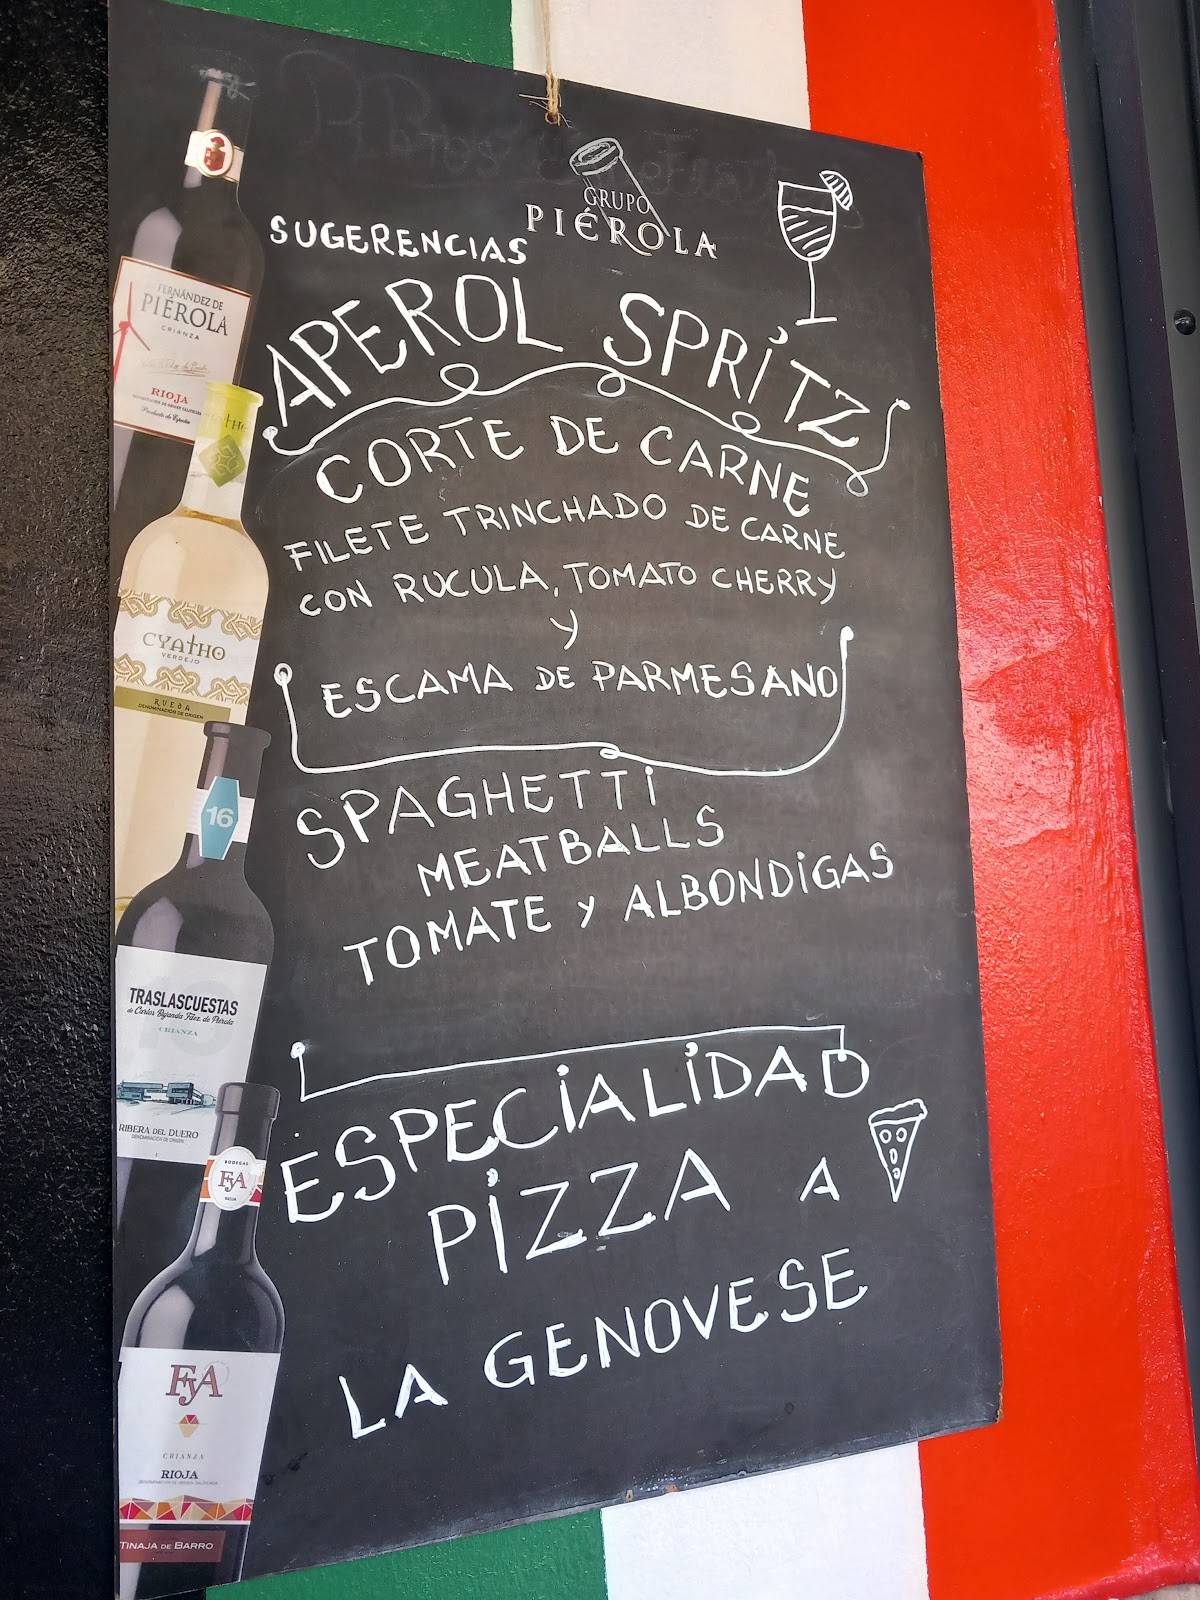 GRUPO
PIÉROLA
SUGERENCIAS
APEROL SPRiTZ
CORTE DE CARNE
FILETE TRINCHADO DE CARNE
CON RUCULA, TOMATO CHERRY
y
ESCAMA DE PARMESANO
SPAGHETTi
MEATBALLS
TOMATE y ALBONDiGAS
ESPECiALiDAD
PiZZA A
LA GENOVESE
FERNÁNDEZ DE
PIÉROLA
CRIANZA
RIOJA
Producto de España
CYATHO
VERDEJO
RUEDA
DENOMINACIÓN DE ORIGEN
16
TRASLASCUESTAS
de Carlos Bujanda Fdez. de Piérola
CRIANZA
RIBERA DEL DUERO
DENOMINACIÓN DE ORIGEN
BODEGAS
FyA
RIOJA
FyA
CRIANZA
RIOJA
TINAJA DE BARRO